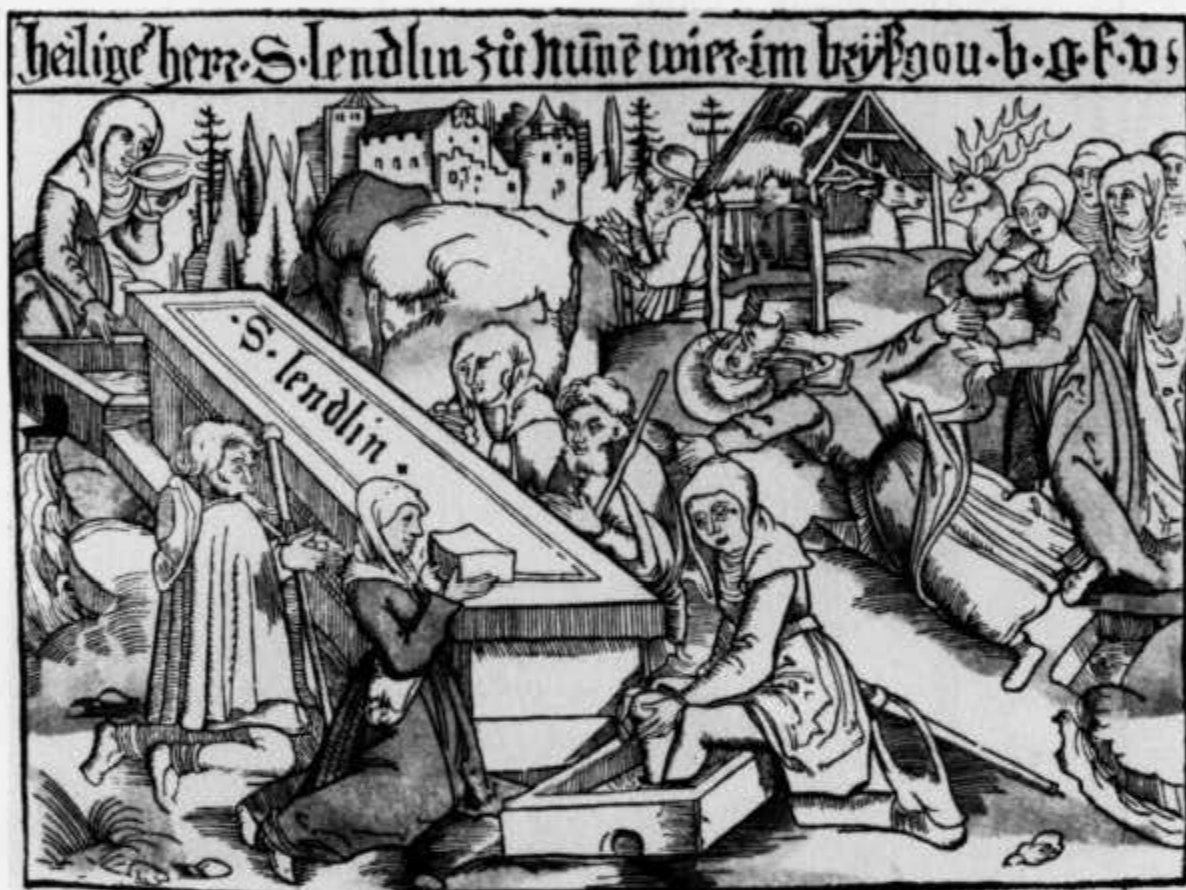 heilige herr · S · lendlin zů Mu̅ne̅wier · im bryßgou · b · g · f · v ·
· S · lendlin ·